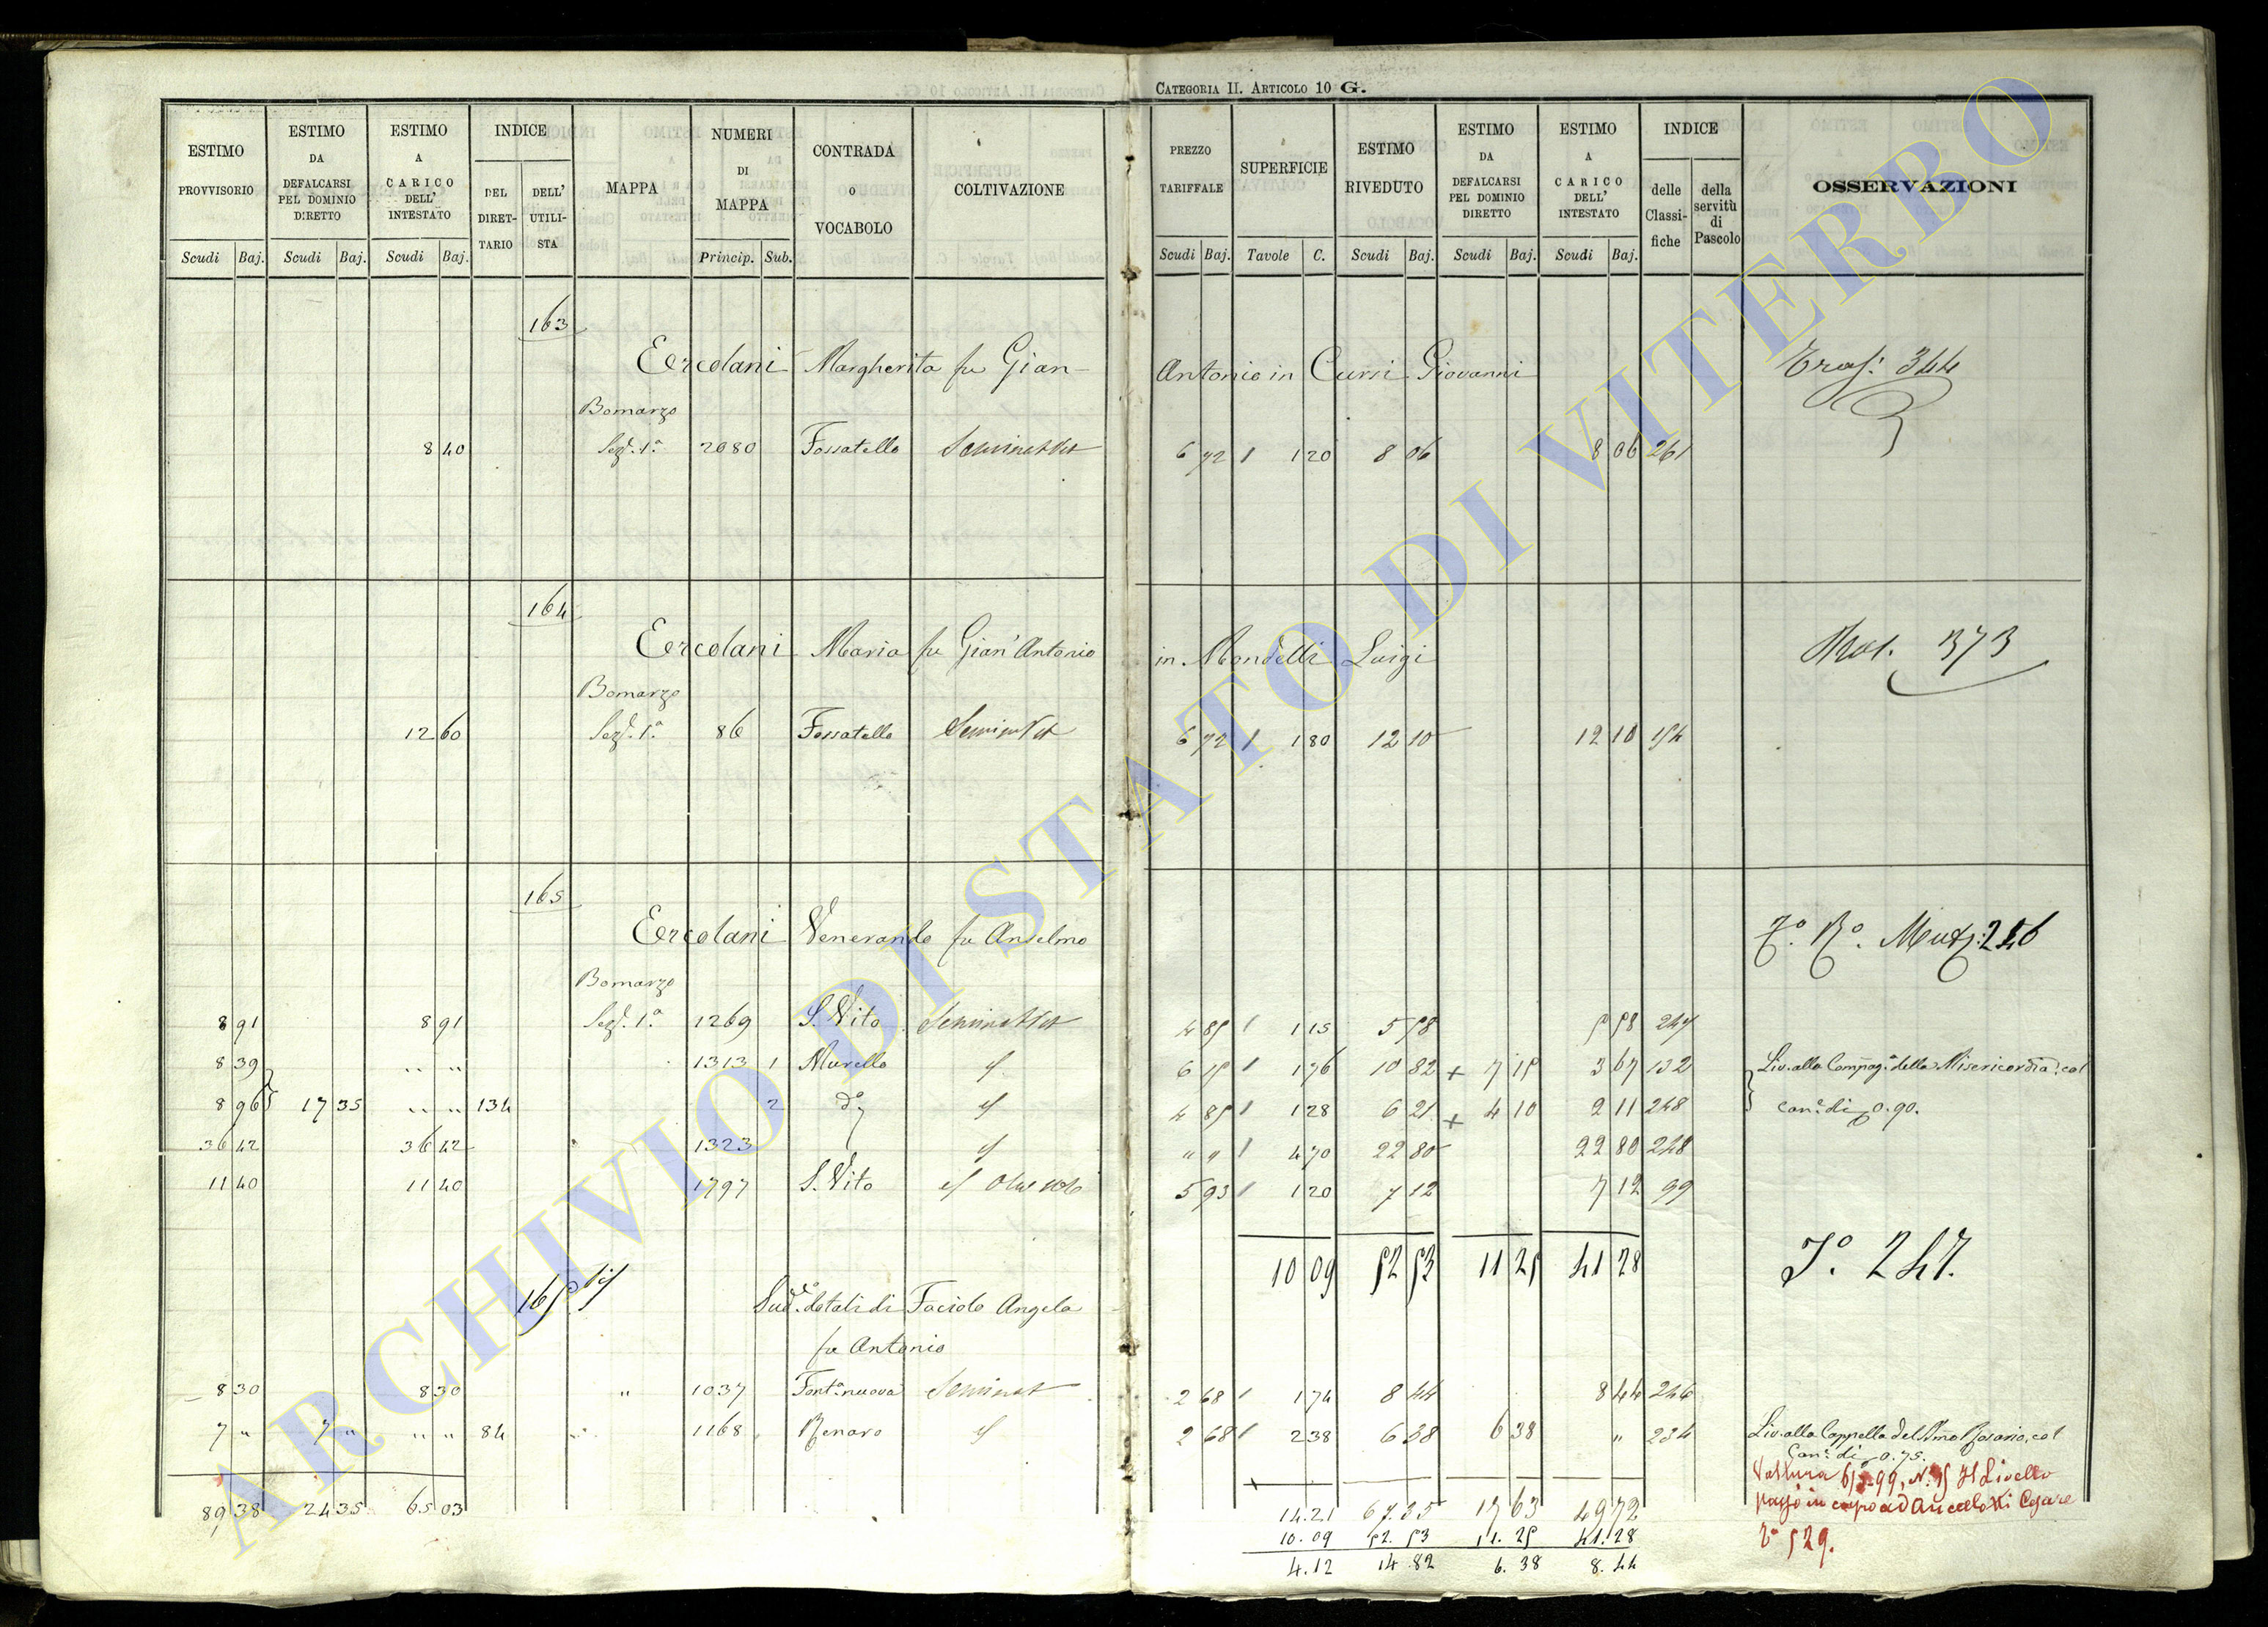 CATEGORIA II. ARTICOLO 10 G.
ESTIMO PROVVISORIO Scudi Baj.
ESTIMO DA DEFALCARSI PEL DOMINIO DIRETTO Scudi Baj.
ESTIMO A CARICO DELL' INTESTATO Scudi Baj.
INDICE DEL DIRETTARIO DELL' UTILISTA
MAPPA
NUMERI DI MAPPA Princip. Sub.
CONTRADA O VOCABOLO
COLTIVAZIONE
PREZZO TARIFFALE Scudi Baj.
SUPERFICIE Tavole C.
ESTIMO RIVEDUTO Scudi Baj.
ESTIMO DA DEFALCARSI PEL DOMINIO DIRETTO Scudi Baj.
ESTIMO A CARICO DELL' INTESTATO Scudi Baj.
INDICE delle Classifiche della servitù di Pascolo
OSSERVAZIONI
163
Ercolani Margherita fu Gian- Antonio in Cursi Giovanni Trasf: 344
Bomarzo
8 40 Sez. 1.a 2080 Fossatello Seminat Vit 6 72 1 1 20 8 06 8 06 261
164
Ercolani Maria fu Gian'Antonio in Mondelli Luigi 373
Bomarzo
12 60 Sez. 1.a 86 Fossatello Semin Vit 6 72 1 1 80 12 10 12 10 154
165
Ercolani Venerando fu Anselmo T.o R.o Mutz. 246
Bomarzo
8 91 8 91 Sez. 1.a 1269 S. Vito Seminat Vit 4 85 1 1 15 5 58 5 58 247
8 39 " " 1313 1 Murello 6 15 1 1 76 10 82 + 7 15 3 67 132 Liv. alla Compag.a della Misericordia col
8 96 17 35 " " 134 2 d.o 4 85 1 1 28 6 21 + 4 10 2 11 248 can.e di 0.90.
36 42 36 42 1323 " " 1 4 70 22 80 22 80 248
11 40 11 40 1797 S. Vito 5 93 1 1 20 7 12 7 12 99
10 09 52 53 11 25 41 28
T.o 247.
165 bis
Sud.o dotali di Faciolo Angela
fu Antonio
8 30 8 30 " 1037 Font.a nuova Seminat 2 68 1 1 74 8 44 8 44 246
7 " 7 " " " 84 1168 Renaro 2 68 1 2 38 6 38 6 38 " 234 Liv. alla Cappella del SSmo Rosario, col
Can.e di 0.75.
Voltura 99, N. 15 Il Livello
passò in capo ad Ancellotti Cesare
T.o 529.
89 38 24 35 65 03 14.21 67.35 17 63 49 72
10.09 52.53 11.25 41.28
4.12 14.82 6.38 8.44
ARCHIVIO DI STATO DI VITERBO